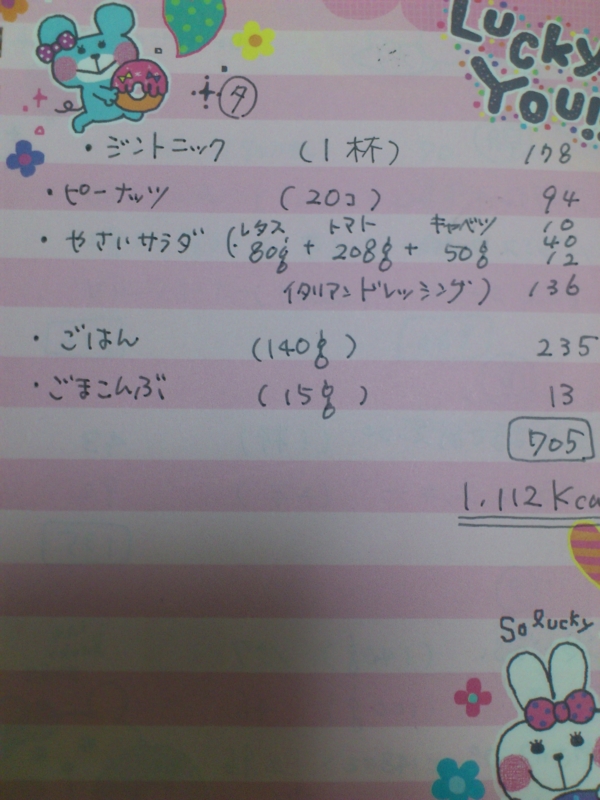 Lucky
You!!
夕
・ジントニック (1杯) 178
・ピーナッツ (20コ) 94
レタス トマト キャベツ 10
・やさいサラダ (80g + 208g + 50g 40
12
イタリアンドレッシング) 136
・ごはん (140g) 235
・ごまこんぶ (15g) 13
705
1,112 Kca
So lucky